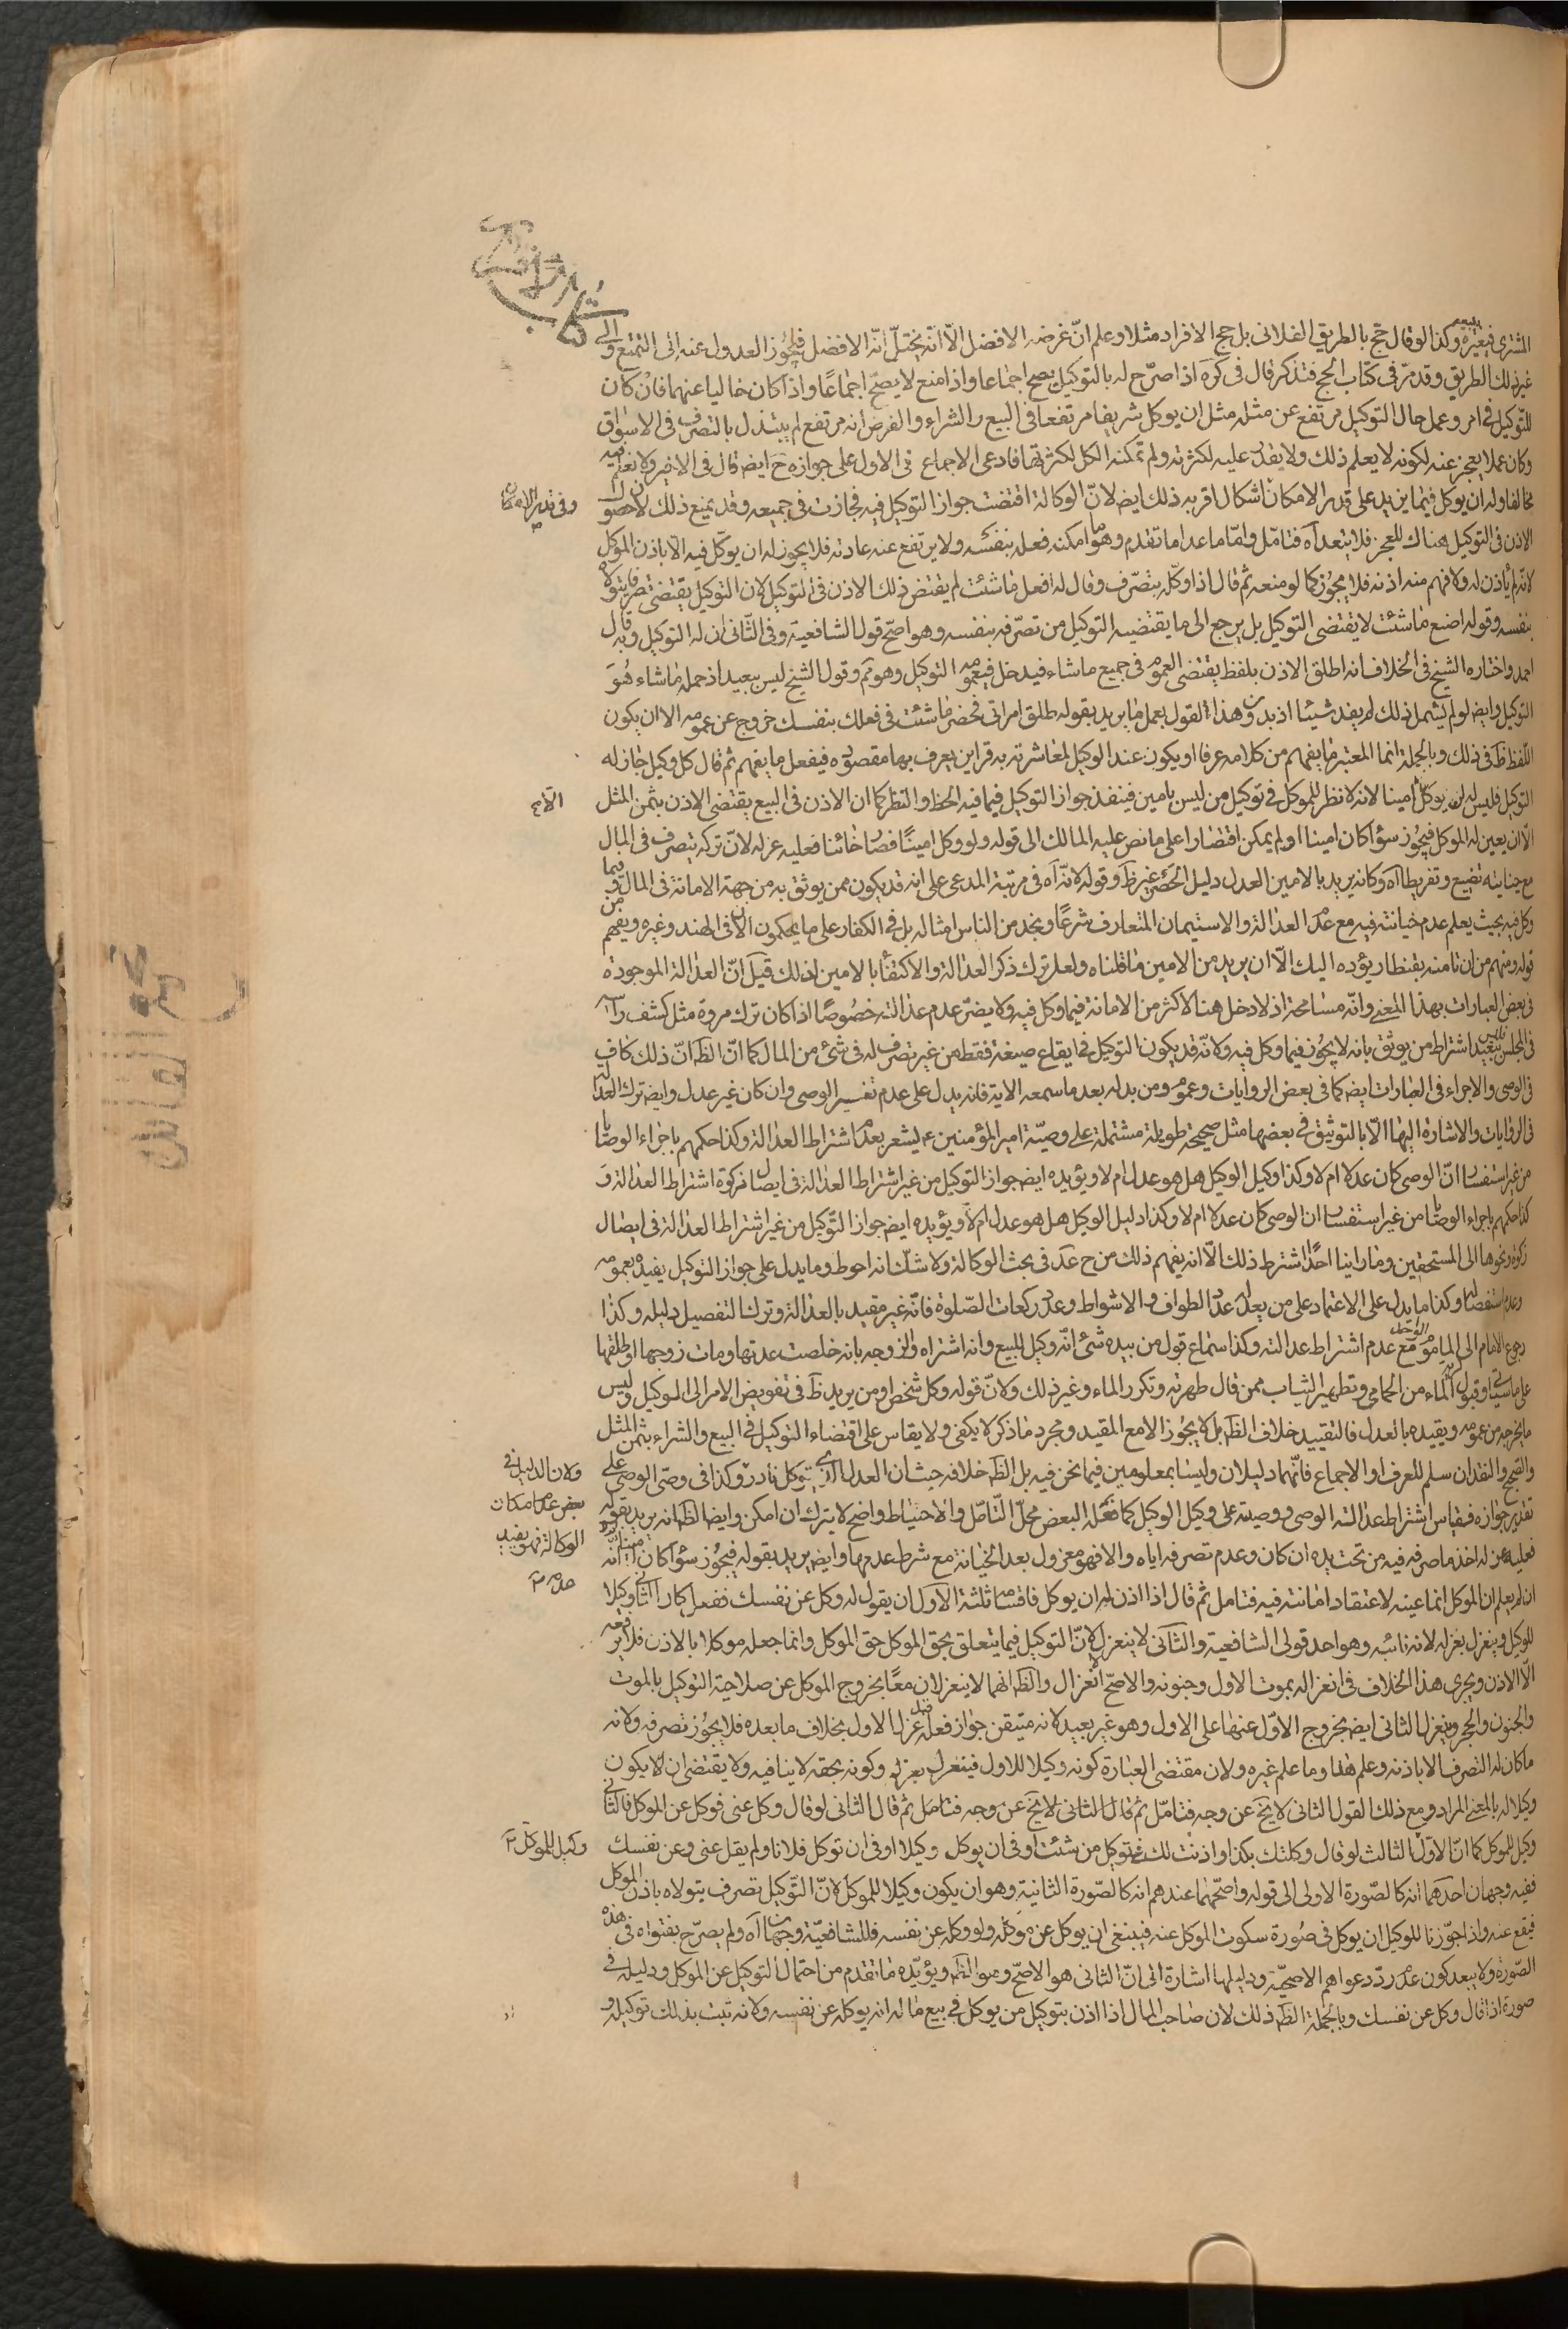 كتاب الوكالة
المشترى فيغيره وكذا لو قال حج بالطريق الفلانى بل حج الافراد مثلا وعلم انّ غرضه الافضل الّا انّه يختلّ انّه الافضل فيجوز العدول عنه الى التمتع والى
غير ذلك الطريق وقد مرّ فى كتاب الحج فتذكر قال فى كره اذا صرّح له بالتوكيل يصح اجماعا واذا منع لا يصحّ اجماعًا واذا كان خاليا عنهما فان كان
للتّوكيل فى امر وعمل حال التوكيل مرتفع عن مثله مثل ان يوكل شريفا مرتفعا فى البيع والشراء والفرض انه مرتفع لم يبتذل بالتصرف فى الاسواق
وكان عملا يعجز عنه لكونه لا يعلم ذلك ولا يقدر عليه لكثرته ولم تمكنه الكل لكثرتها فادعى الاجماع فى الاول على جوازه ح ايض قال فى الاخير ولا نعلم فيه
مخالفا وله ان يوكل فيما يزيد على قدر الامكان اشكال اقربه ذلك ايض لانّ الوكالة اقتضت جواز التوكيل فيه فجازت فى جميعه وقد يمنع ذلك لان حصول
وفى قدر الامكان
الاذن فى التوكيل هناك للعجز فلا يتعداه فتامّل وامّا ما عدا ما تقدم وهو ما امكنه فعله بنفسه ولا يرتفع عنه عادته فلا يجوز له ان يوكّل فيه الّا باذن الموكل
لانّه لم يأذن له ولا فهم منه اذنه فلا يجوز كما لو منعه ثم قال اذا وكّله بتصرّف وقال له افعل ما شئت لم يقتض ذلك الاذن فى التوكيل لان التوكيل يقتضى تصرفا يتولاه
بنفسه وقوله اصنع ما شئت لا يقتضى التوكيل بل يرجع الى ما يقتضيه التوكيل من تصرّفه بنفسه وهو اصحّ قول الشافعية وفى الثّانى ان له التوكيل وبه قال
احمد واختاره الشيخ فى الخلاف انه اطلق الاذن بلفظ يقتضى العموم فى جميع ما شاء فيدخل فى عمومه التوكيل وهو ثم وقول الشيخ ليس ببعيد اذ جملة ما شاء هو
التوكيل وايض لو لم يشمل ذلك لم يفد شيئا اذ بدون هذا القول يعمل ما يريد بقوله طلق امراتى فحضر ما شئت فى فعلك بنفسك خروج عن عمومه الا ان يكون
اللّفظ ظ فى ذلك وبالجملة انما المعتبر ما يفهم من كلامه عرفا او يكون عند الوكيل لمعاشرته به قراين يعرف بها مقصوده فيفعل ما يفهم ثم قال كل وكيل جاز له
التوكيل فليس له ان يوكل امينا لانه لا نظر للموكل فى توكيل من ليس بامين فينفذ جواز التوكيل فيما فيه الحظ والنظر كما ان الاذن فى البيع يقتضى الاذن بثمن المثل
الّا
الّا ان يعين له الموكل فيجوز سواء كان امينا او لم يمكن اقتصارا على ما نص عليه المالك الى قوله ولو وكل امينًا فصار خائنا فعليه عزله لانّ تركه يتصرف فى المال
مع جنايته تضيع وتفريط اه وكانه يريد بالامين العدل دليل الحصر غير ظ وقوله لانّه اه فى مرتبة المدعى على انه قد يكون ممن يوثق به من جهة الامانة فى المال وفيما
وكل فيه بحيث يعلم عدم خيانته فيه مع عدم العدالة والاستيمان المتعارف شرعًا ويجد من الناس امثاله بل فى الكفار على ما يحكمون الان فى الهند وغيره ويفهم من
قوله ومنهم من ان تامنه بقنطار يؤده اليك الّا ان يريد من الامين ما قلناه ولعل ترك ذكر العدالة والاكتفاء بالامين لذلك قيل انّ العدالة الموجودة
فى بعض العبارات بهذا المعنى وانّه مسامحة اذ لا دخل هنا لاكثر من الامانة فيما وكل فيه ولا يضرّ عدم عدالته خصوصًا اذا كان ترك مروة مثل كشف راسه
فى المجلس فيبعد اشتراط من يوثق بانه لا يخون فيما وكل فيه ولانّه قد يكون التوكيل فى ايقاع صيغة فقط من غير تصرف له فى شئ من المال كما انّ الظ انّ ذلك كاف
فى الوصى والاجراء فى العبارات ايض كما فى بعض الروايات وعموم ومن بدله بعد ما سمعه الاية فانه يدل على عدم تغيير الوصى وان كان غير عدل وايض ترك العدالة
فى الروايات والاشارة اليها الّا بالتوثيق فى بعضها مثل صحيحة طويلة مشتملة على وصيّة امير المؤمنين ع يشعر بعدم اشتراط العدالة وكذا حكمهم باجراء الوصايا
من غير استفسار انّ الوصى كان عدلا ام لا وكذا وكيل الوكيل هل هو عدل ام لا ويؤيده ايض جواز التوكيل من غير اشتراط العدالة فى ايصال زكوة اشتراط العدالة و
كذا حكمهم باجراء الوصايا من غير استفسار ان الوصى كان عدلا ام لا وكذا دليل الوكيل هل هو عدل ام لا ويؤيده ايض جواز التّوكيل من غير اشتراط العدالة فى ايصال
زكوة ونحوها الى المستحقين وما راينا احدًا اشترط ذلك الّا انه يفهم ذلك من ح عد فى بحث الوكالة ولا شكّ انه احوط وما يدل على جواز التوكيل يفيده بعمومه
وعدم استفصال وكذا ما يدل على الاعتماد على من يعدّ عدد الطواف والاشواط وعدد ركعات الصّلوة فانّه غير مقيد بالعدالة وترك التفصيل دليله وكذا
رجوع الامام الى الماموم مع عدم اشتراط عدالته وكذا سماع قول من بيده شئ انّه وكيل للبيع وانه اشتراه والزوجة بانه خلصت عدتها ومات زوجها او طلقها
على ما سيجئ وقبول الماء من الحمامى وتطهير الثياب ممن قال طهرته وتكرر الماء وغير ذلك ولانّ قوله وكل شخص او من يريد ظ فى تفويض الامر الى الوكيل وليس
ما يخرجه من عمومه ويقيده بالعدل فالتقييد خلاف الظ بل لا يجوز الا مع المقيد ومجرد ما ذكر لا يكفى ولا يقاس على اقتضاء التوكيل فى البيع والشراء بثمن المثل
والصحيح والنقد ان سلم للعرف او الاجماع فانّهما دليلان وليسا بمعلومين فيما نحن فيه بل الظ خلافه حيث ان العدل الذى يتوكل نادر وكذا فى وصّى الوصى على
ولان الدليل فى بعض عدم امكان الوكالة فهو يفيد
تقدير جوازه فقياس اشتراط عدالة الوصى ووصيته على وكيل الوكيل كما فعله البعض محلّ التّامّل والاحتياط واضح لا يترك ان امكن وايضا الظ انه يريد بقوله
فعليه عزله اخذ ما صرفه فيه من تحت يده ان كان وعدم تصرفه اياه والا فهو معزول بعد الخيانة مع شرط عدمها وايض يريد بقوله فيجوز سواء كان امينا انّه
ان لم يعلم ان الموكل انما عينه لاعتقاد امانته فيه فتامل ثم قال اذا اذن له ان يوكل فاقسامه ثلثة الاول ان يقول له وكل عن نفسك ففعل كان الثانى وكيلا
للوكيل وينعزل بعزله لانه نائبه وهو احد قولى الشافعية والثانى لا ينعزل لانّ التوكيل فيما يتعلق بحق الموكل حق الموكل وانما جعله موكلا بالاذن فلا يرفعه
الّا الاذن ويجرى هذا الخلاف فى انعزاله بموت الاول وجنونه والاصحّ انعزال والظ انهما لا ينعزلان معًا بخروج الموكل عن صلاحية التوكيل بالموت
والجنون والحجر وينعزل الثانى ايض بخروج الاوّل عنها على الاول وهو غير بعيد لانه متيقن جواز فعله قبل عزل الاول بخلاف ما بعده فلا يجوز تصرفه ولانه
ما كان له التصرف الا باذنه وعلم هذا وما علم غيره ولان مقتضى العبارة كونه وكيلا للاول فينعزل بعزله وكونه بحقه لا ينافيه ولا يقتضى ان لا يكون
وكيلا له بالمعنى المراد ومع ذلك القول الثانى لا يخ عن وجه فتامّل ثم قال الثانى لا يخ عن وجه فتامل ثم قال الثانى لو قال وكل عنى فوكل عن الموكل فالثانى
وكيل للموكل كما انّ الاوّل الثالث لو قال وكلتك بكذا واذنت لك فى توكيل من شئت او فى ان يوكل وكيلا او فى ان توكل فلانا ولم يقل عنى وعن نفسك
وكيل للموكل
ففيه وجهان احدهما انه كالصّورة الاولى الى قوله واصحّهما عندهم انه كالصّورة الثانية وهو ان يكون وكيلا للموكل لانّ التّوكيل تصرف يتولاه باذن الموكل
فيقع عنه واذا جوّزنا للوكيل ان يوكل فى صورة سكوت الموكل عنه فينبغى ان يوكل عن موكله ولو وكله عن نفسه فللشافعيّة وجهان اه ولم يصرّح بفتواه فى هذه
الصّورة ولا يبعد كون عدم ردّ دعواهم الاصحيّة ودليلها اشارة الى انّ الثانى هو الاصحّ وهو الظ ويؤيّده ما تقدم من احتمال التوكيل عن الموكل ودليله فى
صورة اذا قال وكل عن نفسك وبالجملة الظ ذلك لان صاحب المال اذا اذن بتوكيل من يوكل فى بيع ماله انه يوكله عن نفسه ولانه ثبت بذلك توكيله و